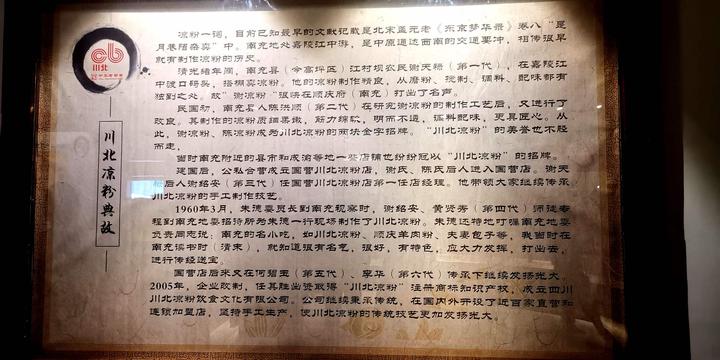 川北
川北凉粉典故
凉粉一词，目前已知最早的文献记载是北宋孟元老《东京梦华录》卷八“是
月巷陌杂卖”中。南充地处嘉陵江中游，是中原通达西南的交通要冲，相传很早
就有制作凉粉的历史。
清光绪年间，南充县（今高坪区）江村坝农民谢天禄（第一代），在嘉陵江
中渡口码头，搭棚卖凉粉。他的凉粉制作精良，从磨粉、搅制、调料、配味都有
独到之处。故“谢凉粉”很快在顺庆府（南充）打出了名声。
民国初，南充县人陈洪顺（第二代）在研究谢凉粉的制作工艺后，又进行了
改良。其制作的凉粉质细柔嫩，筋力绵软，明而不透，调料配味，更具匠心。从
此，谢凉粉、陈凉粉成为川北凉粉的两块金字招牌。“川北凉粉”的美誉也不胫
而走。
当时南充附近的县市和成渝等地一些店铺也纷纷冠以“川北凉粉”的招牌。
建国后，公私合营成立国营川北凉粉店，谢氏、陈氏后人进入国营店。谢天
禄后人谢绍安（第三代）任国营川北凉粉店第一任店经理。他带领大家继续传承
川北凉粉的手工制作技艺。
1960年3月，朱德委员长到南充视察时，谢绍安、黄贤秀（第四代）师徒专
程到南充地委招待所为朱德一行现场制作了川北凉粉。朱德还特地叮嘱南充地委
负责同志说：南充的名小吃，如川北凉粉、顺庆羊肉粉、夫妻包子等，我当时在
南充读书时（清末），就知道很有名气，很好，有特色，应大力发挥，打出去，
进行传经送宝。
国营店后来又在何碧玉（第五代）、李华（第六代）传承下继续发扬光大。
2005年，企业改制，任其胜出资取得“川北凉粉”注册商标知识产权，成立四川
川北凉粉饮食文化有限公司。公司继续秉承传统，在国内外开设了近百家直营和
连锁加盟店，坚持手工生产，使川北凉粉的传统技艺更加发扬光大。